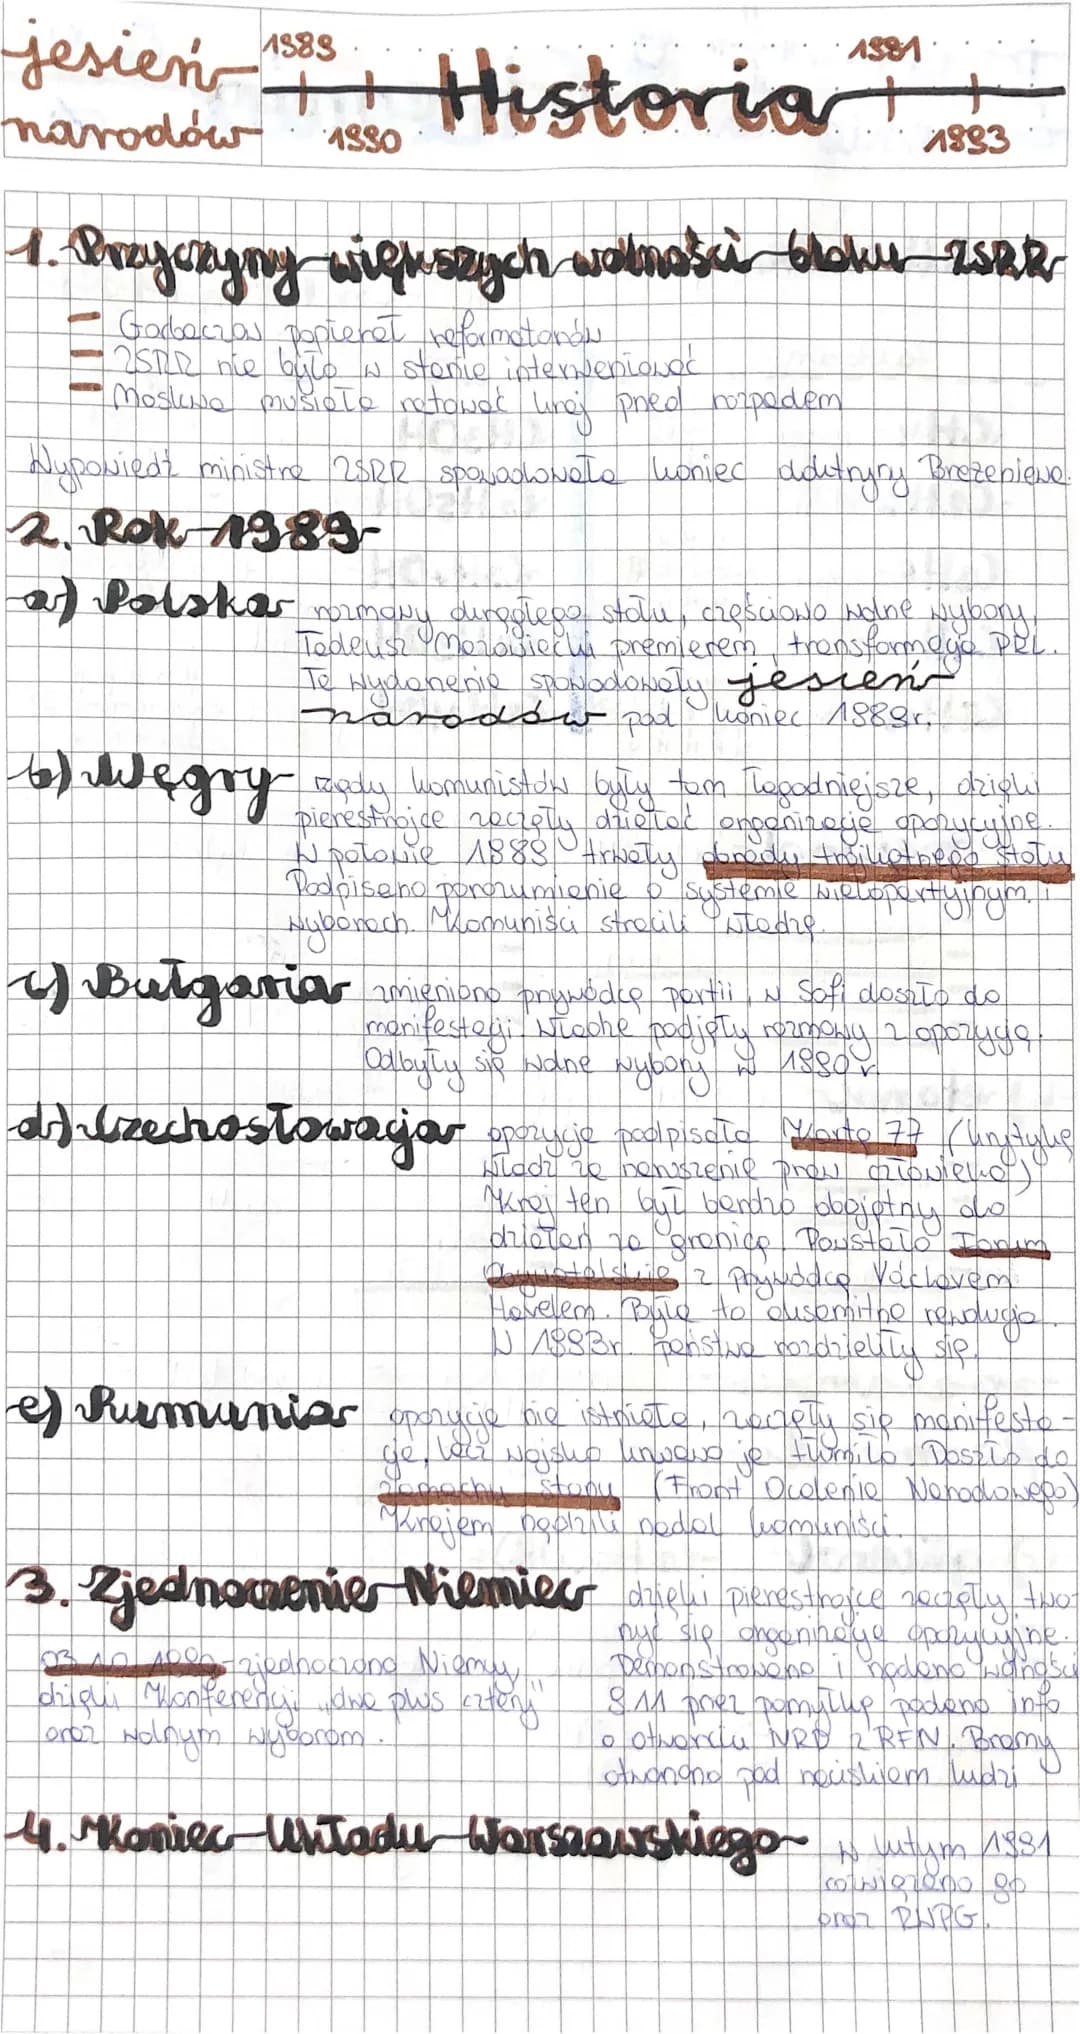 jesień
narodów
1989
1990
Historia
1991
1993
1. Przyczyny większych wolności bloku ZSRR
- Gorbaczow popierał reformatorów
- ZSRR nie było w stanie interweniować
- Moskwa musiała ratować kraj przed rozpadem
Wypowiedź ministra ZSRR spowodowała koniec doktryny Breżniewa.
2. Rok 1989
a) Polska rozmowy okrągłego stołu, częściowo wolne wybory,
Tadeusz Mazowiecki premierem, transformacja PRL.
Te wydarzenia spowodowały jesień
narodów pod koniec 1989r.
b) Węgry rządy komunistów były tam łagodniejsze, dzięki
pierestrojce zaczęły działać organizacje opozycyjne.
W połowie 1989 trwały obrady trójkątnego stołu
Podpisano porozumienie o systemie wielopartyjnym i
wyborach. Komuniści stracili władzę.
c) Bułgaria zmieniono przywódcę partii, w Sofi doszło do
manifestacji. Władze podjęły rozmowy z opozycją.
Odbyły się wolne wybory w 1990r.
d) Czechosłowacja opozycja podpisała Kartę 77 (krytykę
władz za naruszenie praw człowieka)
Kraj ten był bardzo obojętny do
działań za granicą. Powstało Forum
Obywatelskie z przywódcą Václavem
Havelem. Była to aksamitna rewolucja.
W 1993r. państwa rozdzieliły się.
e) Rumunia opozycja nie istniała, zaczęły się manifesta-
cje, lecz wojsko krwawo je tłumiło. Doszło do
zamachu stanu (Front Ocalenia Narodowego)
Krajem rządzili nadal komuniści.
3. Zjednoczenie Niemiec dzięki pierestrojce zaczęły two-
rzyć się organizacje opozycyjne.
Demonstrowano i żądano wolności
9.11 przez pomyłkę podano info
o otwarciu NRD z RFN. Bramy
otworzono pod naciskiem ludzi
03.10.1990 - zjednoczono Niemcy,
dzięki Konferencji "dwa plus cztery"
oraz wolnym wyborom.
4. Koniec Układu Warszawskiego w lutym 1991
rozwiązano go
oraz RWPG.